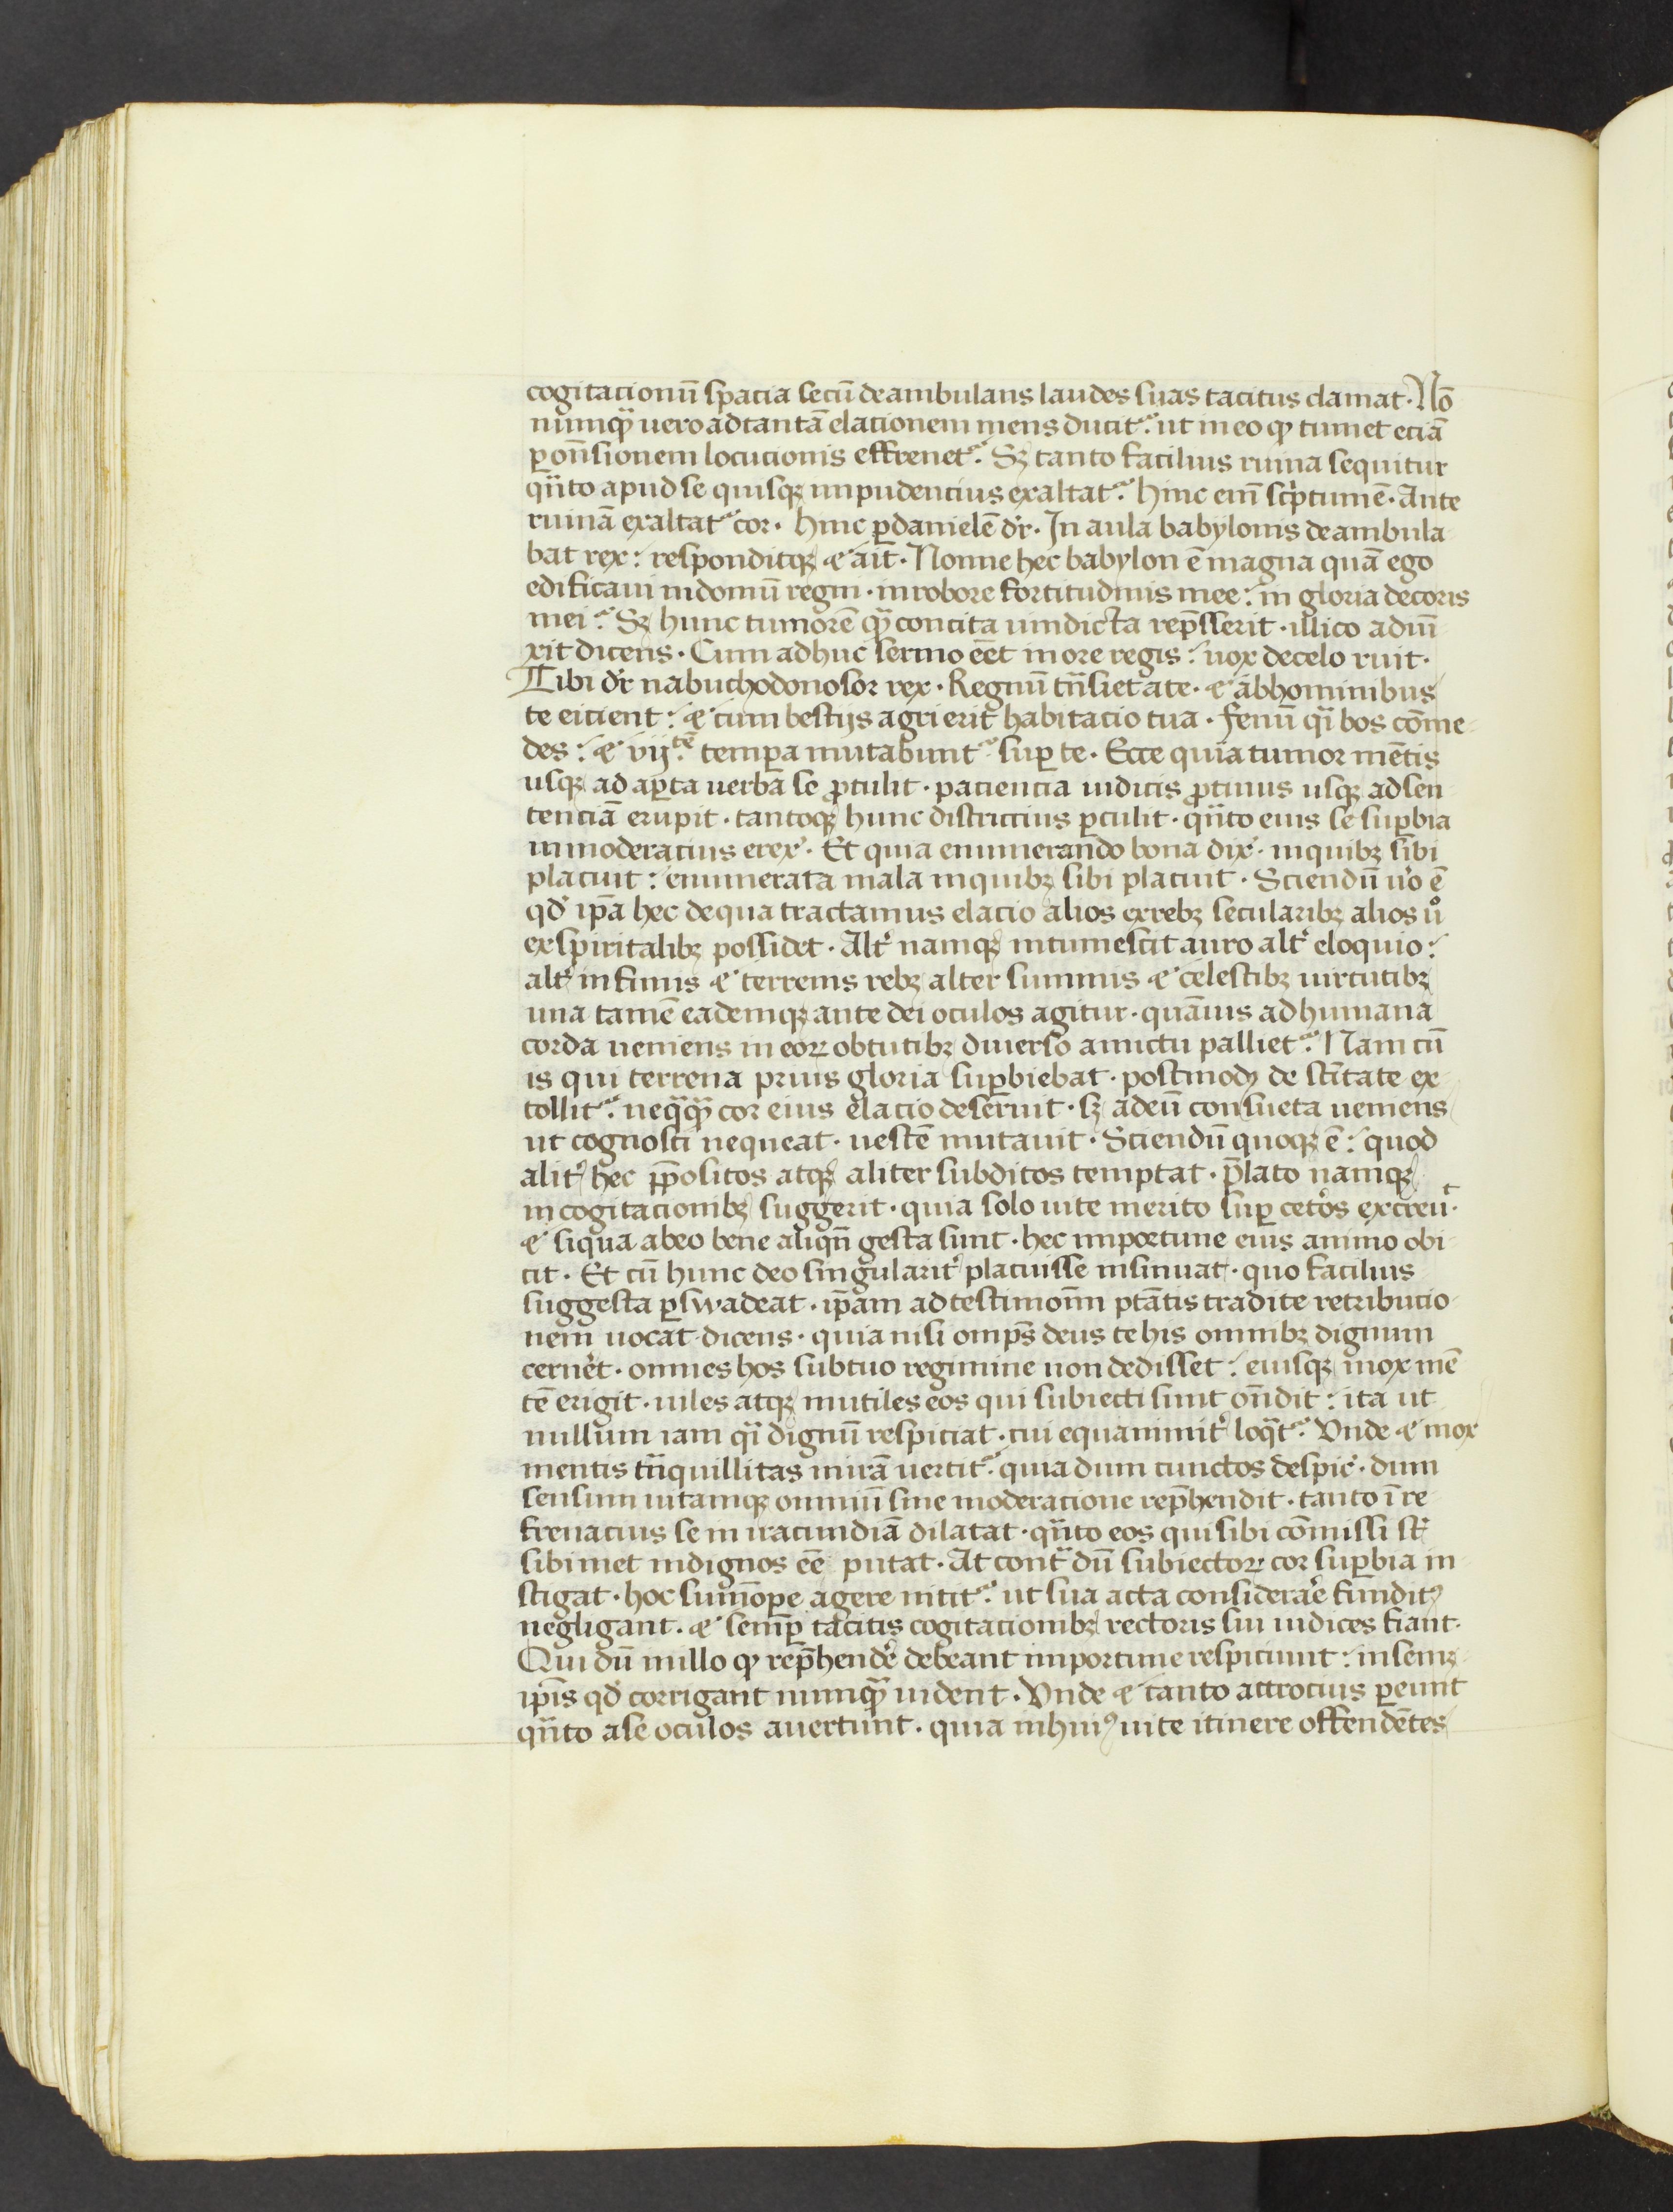 cogitacionū spacia secū deambulans laudes suas tacitus clamat. Nō
numqͣ uero ad tantā elacionem mens ducit᷑. ut in eo qꝫ tumet eciā
ꝑ onn̄sionem locucionis effrenet᷑. Sꝫ tanto facilius ruina sequitur
qn̄to apud se quisqꝫ impudencius exaltat᷑. hinc em̄ scͥptum ē. Ante
ruinā exaltat᷑ cor. hinc ꝑ danielē dr̄. In aula babylonis deambula
bat rex: responditqꝫ & ait. Nonne hec babylon ē magna quā ego
edificaui in domū regni. in robore fortitudinis mee: in gloria decoris
mei᷑. Sꝫ hunc tumorē qͣ concita uindicta rep̄sserit. illico adiū
xit dicens. Cum adhuc sermo eēt in ore regis: uox de celo ruit.
Tibi dr̄ nabuchodonosor rex. Regnū tn̄siet a te. & ab hominibus
te eicient: & cum bestijs agri erit habitacio tua. fenū qͣ bos cōme
des: & vij.tē tempa mutabunt᷑ suꝑ te. Ecce quia tumor mētis
usqꝫ ad aꝑta uerba se ꝓtulit. paciencia iudicis ꝓtinus usqꝫ ad sen
tenciā erupit. tantoqꝫ hunc districcius ꝑculit. qn̄to eius se suꝑbia
inmoderacius erex᷑. Et quia enumerando bona dix᷑. in quibꝫ sibi
placuit: enumerata mala in quibꝫ sibi placuit. Sciendū u͛o ē
qd̄ ip̄a hec de qua tractamus elacio alios ex rebꝫ secularibꝫ alios uͦ
ex spiritalibꝫ possidet. Alt͛ namqꝫ intumescit auro alt͛ eloquio:
alt͛ infimis & terrenis rebꝫ alter summis & celestibꝫ uirtutibꝫ
una tamē eademqꝫ ante dei oculos agitur. quāuis ad humana
corda ueniens in eoꝝ obtutibꝫ diuerso amictu palliet᷑. Nam cū
is qui terrena prius gloria suꝑbiebat. postmodꝫ de sc̄itate ex
tollit᷑. neqͣqͣ cor eius elacio deseruit. sꝫ ad eū consueta ueniens
ut cognosci nequeat. uestē mutauit. Sciendū quoqꝫ ē: quod
alit͛ hec p̄positos atqꝫ aliter subditos temptat. p̄lato namqꝫ
in cogitacionibꝫ suggerit. quia solo uite merito suꝑ cet͛os excreu᷑.
& siqua ab eo bene aliqn̄ gesta sunt. hec importune eius animo obi
cit. Et cū hunc deo singularit͛ placuisse insinuat. quo facilius
suggesta ꝑswadeat. ip̄am ad testimoniū ptātis tradite retribucio
nem uocat dicens. quia nisi omps̄ deus te his omnibꝫ dignum
cern͛et. omnes hos sub tuo regimine non dedisset: eiusqꝫ mox mē
tē erigit. uiles atqꝫ inutiles eos qui subiecti sunt on̄dit: ita ut
nullum iam qͣ dignū respiciat. cui equanimit͛ loqͣt᷑. Vnde & mox
mentis tn̄quillitas in irā uertit᷑. quia dum cunctos despic᷑. dum
sensum uitamqꝫ omniū sine moderacione rep̄hendit. tanto īre
frenacius se in iracundiā dilatat. qn̄to eos qui sibi cōmissi st̄
sibimet indignos eē putat. At contͣ dū subiectoꝝ cor suꝑbia in
stigat. hoc sum̄ope agere nitit᷑. ut sua acta considerar͛e fundit⁹
negligant. & semꝑ tacitis cogitacionibꝫ rectoris sui iudices fiant.
Qui dū in illo qꝫ rep̄hend͛e debeant importune respiciunt: in semꝫ
ip̄is qd̄ corrigant numqͣ uident. Vnde & tanto attrocius ꝑeunt
qn̄to a se oculos auertunt. quia in hui⁹ uite itinere offendētes